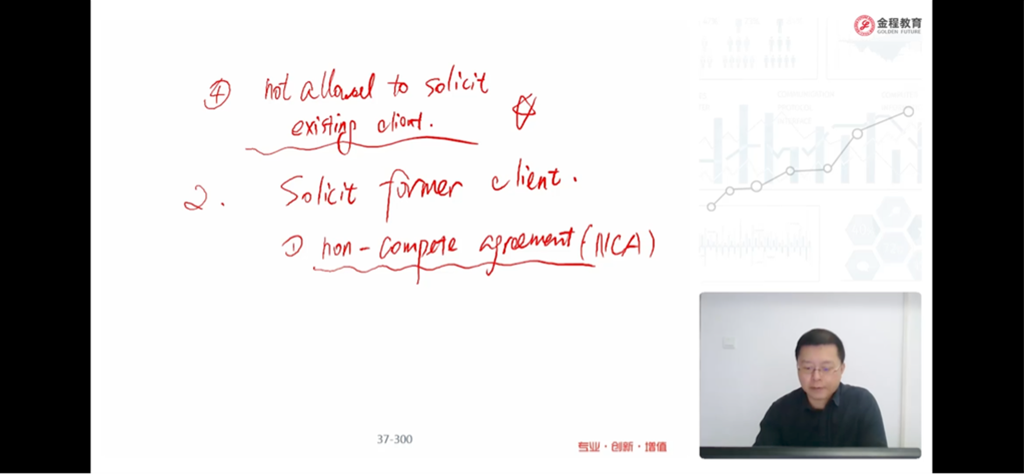 金程教育
GOLDEN FUTURE
④ not allowed to solicit
existing client.
2. Solicit former client.
① non-compete agreement (NCA)
37-300
专业·创新·增值